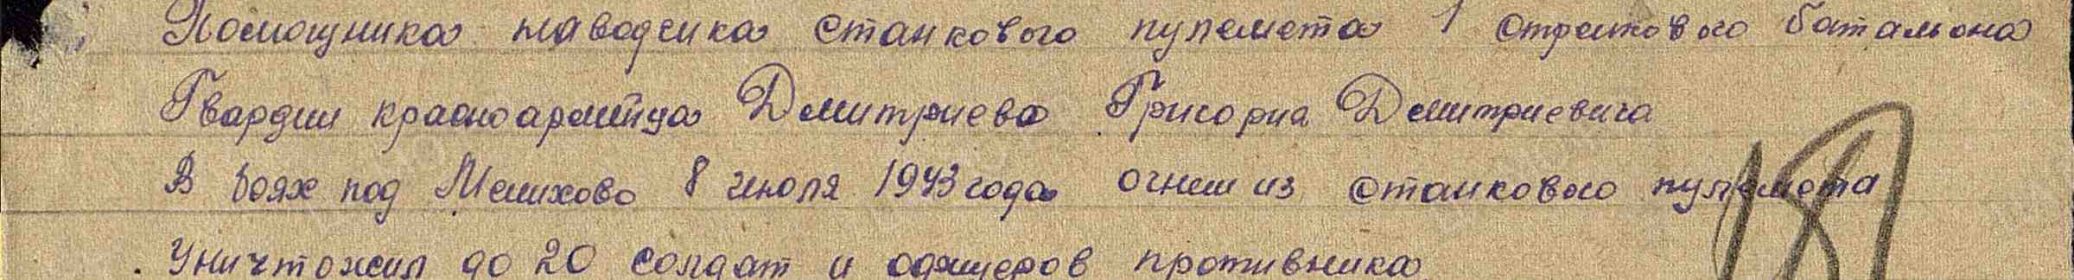 Помощника наводчика станкового пулемета 1 стрелкового батальона
Гвардии красноармейца Дмитриева Григория Дмитриевича
В боях под Мелихово 8 июля 1943 года огнем из станкового пулемета
уничтожил до 20 солдат и офицеров противника